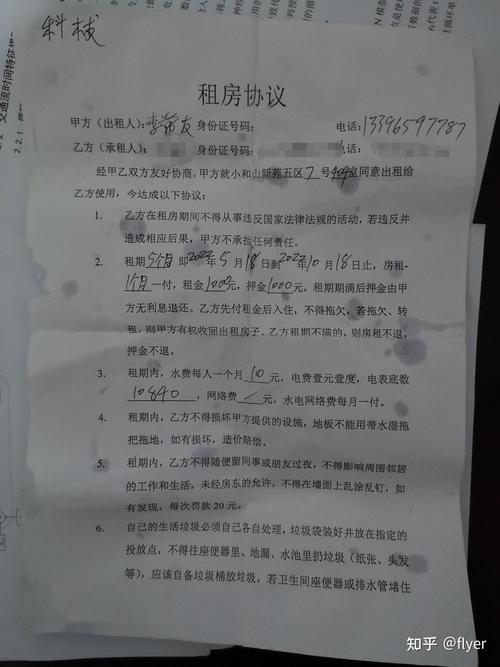 科械
租房协议
甲方（出租人）：李 友 身份证号码： 电话：13396597787
乙方（承租人）： 身份证号码： 电话：
经甲乙双方友好协商。甲方就小和山新苑五区 7 号404室同意出租给
乙方使用，今达成以下协议：
1. 乙方在租房期间不得从事违反国家法律法规的活动，若违反并
造成相应后果，甲方不承担任何责任。
2. 租期 5个月 即2022年 5 月 18日到2022年10 月 18日止，房租-
1个月一付，租金1000元，押金1000元，租期期满后押金由甲
方无利息退还。乙方先付租金后入住，不得拖欠，若拖欠、转
租。则甲方有权收回出租房子。乙方租期不满的，则房租不退，
押金不退。
3. 租期内，水费每人一个月 10 元，电费壹元壹度，电表底数
10840，网络费 / 元，水电网络费每月一付。
4. 租期内，乙方不得损坏甲方提供的设施，地板不能用带水湿拖
把拖地，如有损坏，造价赔偿。
5. 租期内，乙方不得随便留同事或朋友过夜，不得影响周围邻居
的工作和生活。未经房东的允许，不得在墙面上乱涂乱钉，如
有发现，每次罚款 20 元。
6. 自己的生活垃圾必须自己各自处理，垃圾袋装好并放在指定的
投放点，不得往座便器里、地漏、水池里扔垃圾（纸张、头发
等），应该自备垃圾桶放垃圾，若卫生间座便器或排水管堵住
知乎 @flyer